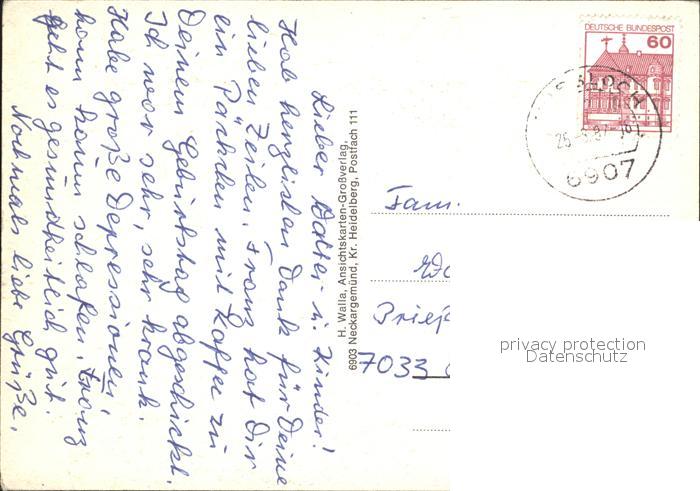 Lieber Walter u. Kinder!
Hab herzlichen Dank für Deine
lieben Zeilen. Franz hat Dir
ein Päckchen mit Kaffee zu
Deinem Geburtstag abgeschickt.
Ich war sehr, sehr krank.
Habe große Depressionen,
kann kaum schlafen. Franz
geht es gesundheitlich gut.
Nochmals liebe Grüße,
H. Walla, Ansichtskarten-Großverlag,
6903 Neckargemünd, Kr. Heidelberg, Postfach 111
DEUTSCHE BUNDESPOST
60
6907
Fam.
7033
privacy protection
Datenschutz